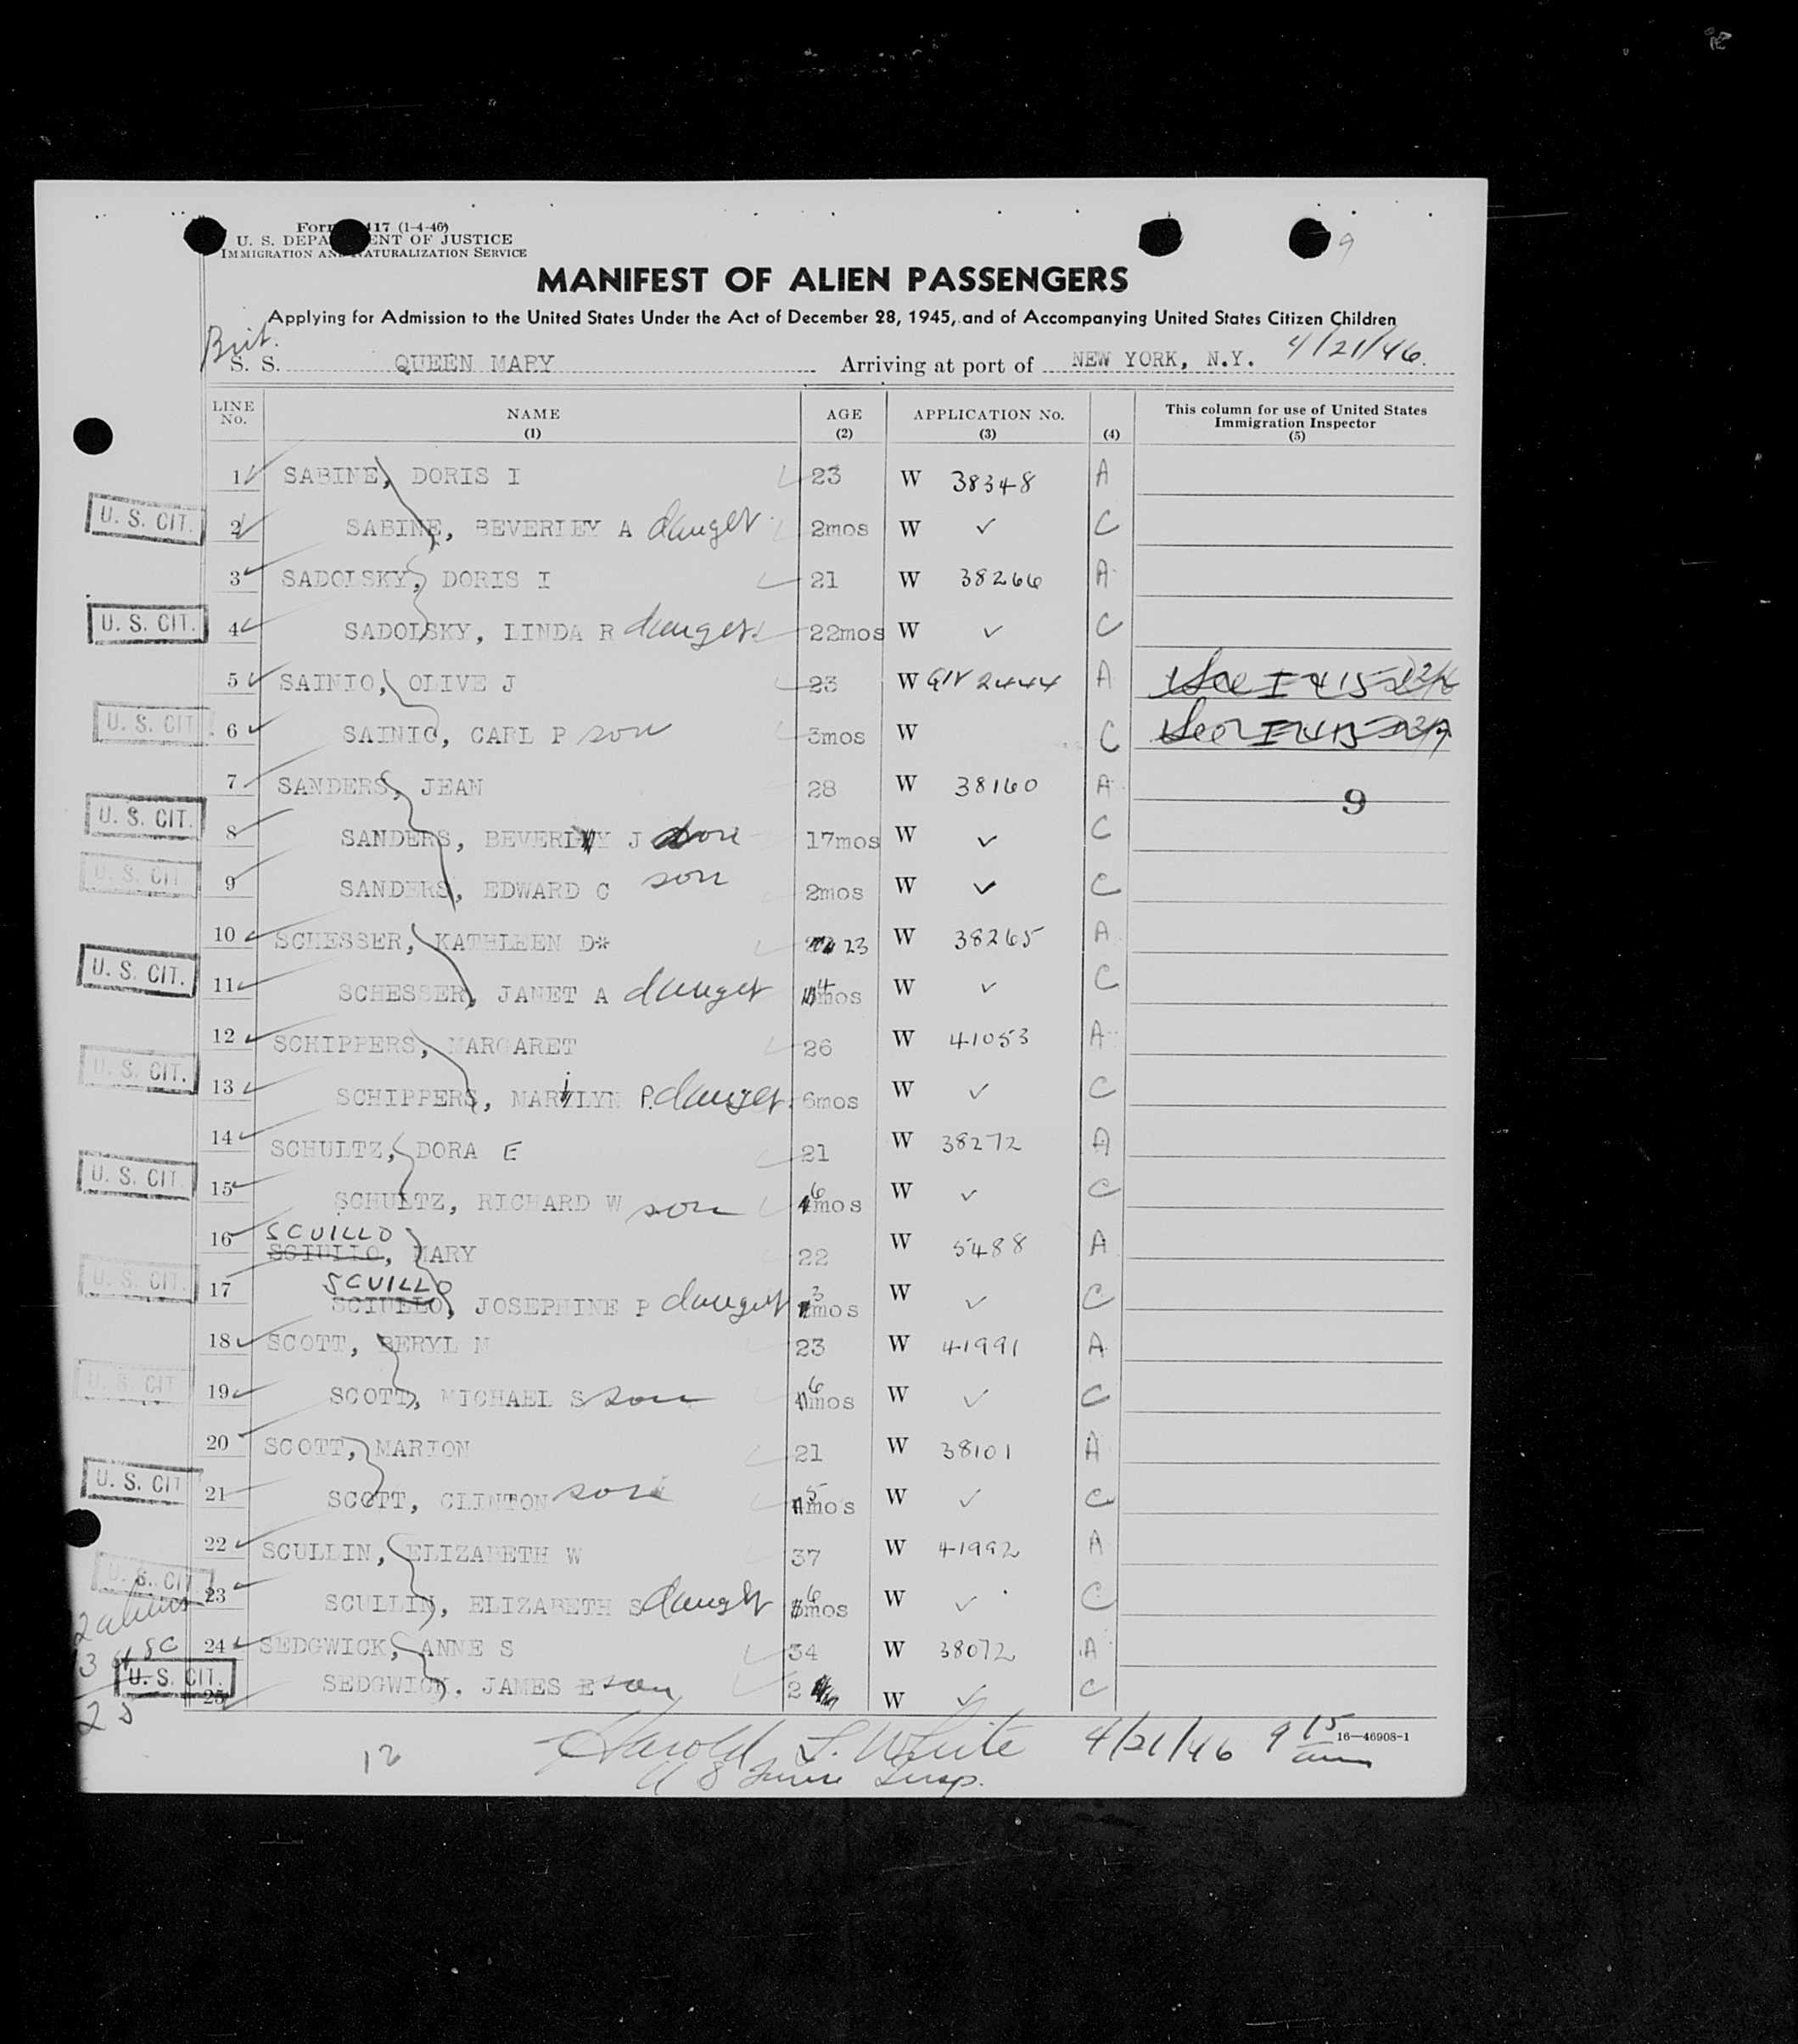 9
Form 417 (1-4-46)
U. S. DEPARTMENT OF JUSTICE
IMMIGRATION AND NATURALIZATION SERVICE
MANIFEST OF ALIEN PASSENGERS
Applying for Admission to the United States Under the Act of December 28, 1945, and of Accompanying United States Citizen Children
Brit.
S. S. QUEEN MARY Arriving at port of NEW YORK, N.Y. 4/21/46.
LINE No. NAME (1) AGE (2) APPLICATION No. (3) (4) This column for use of United States Immigration Inspector (5)
1 SABINE, DORIS I 23 W 38348 A
U. S. CIT. 2 SABINE, BEVERLEY A daught 2mos W ✓ C
3 SADOLSKY, DORIS I 21 W 38266 A
U. S. CIT. 4 SADOLSKY, LINDA R daught 22mos W ✓ C
5 SAINIO, OLIVE J 23 W 2444 A See I 415
U. S. CIT. 6 SAINIO, CARL P son 3mos W C See I 415
7 SANDERS, JEAN 28 W 38160 A 9
U. S. CIT. 8 SANDERS, BEVERLY J son 17mos W ✓ C
U. S. CIT. 9 SANDERS, EDWARD C son 2mos W ✓ C
10 SCHESSER, KATHLEEN D* 23 W 38265 A
U. S. CIT. 11 SCHESSER, JANET A daught 4mos W ✓ C
12 SCHIPPERS, MARGARET 26 W 41053 A
U. S. CIT. 13 SCHIPPERS, MARILYN P. daught. 6mos W ✓ C
14 SCHULTZ, DORA E 21 W 38272 A
U. S. CIT. 15 SCHULTZ, RICHARD W son 6mos W ✓ C
16 SCUILLO SCIULLO, MARY 22 W 5488 A
U. S. CIT. 17 SCUILLO SCIULLO, JOSEPHINE P daught 3mos W ✓ C
18 SCOTT, BERYL M 23 W 41991 A
U. S. CIT 19 SCOTT, MICHAEL S son 6mos W ✓ C
20 SCOTT, MARION 21 W 38101 A
U. S. CIT 21 SCOTT, CLINTON son 5mos W ✓ C
22 SCULLIN, ELIZABETH W 37 W 41992 A
U. S. CIT. 23 SCULLIN, ELIZABETH S daught 6mos W ✓ C
24 SEDGWICK, ANNE S 34 W 38072 A
U. S. CIT. 25 SEDGWICK, JAMES E son 2 W ✓ C
25
12 Harold L. White 4/21/46 9 15 am 16—46908-1
U S Insp.